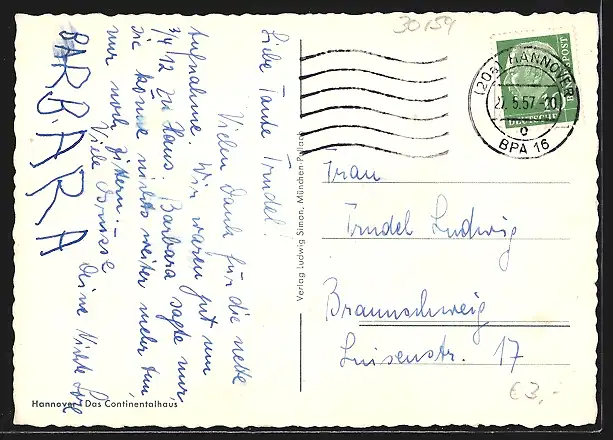 30159
Liebe Tante Trudel!
Vielen Dank für die nette
Aufnahme. Wir waren gut um
3/4 12 zu Haus. Barbara sagte nur,
sie könne nichts weiter mehr tun,
nur noch zittern. –
Viele Grüsse
Deine Nichte
BARBARA
Hannover, Das Continentalhaus
Verlag Ludwig Simon, München-Pullach
(20a) HANNOVER
27. 5. 57
BPA 16
DEUTSCHE
BUNDESPOST
10
Frau
Trudel Ludwig
Braunschweig
Luisenstr. 17
€3,-